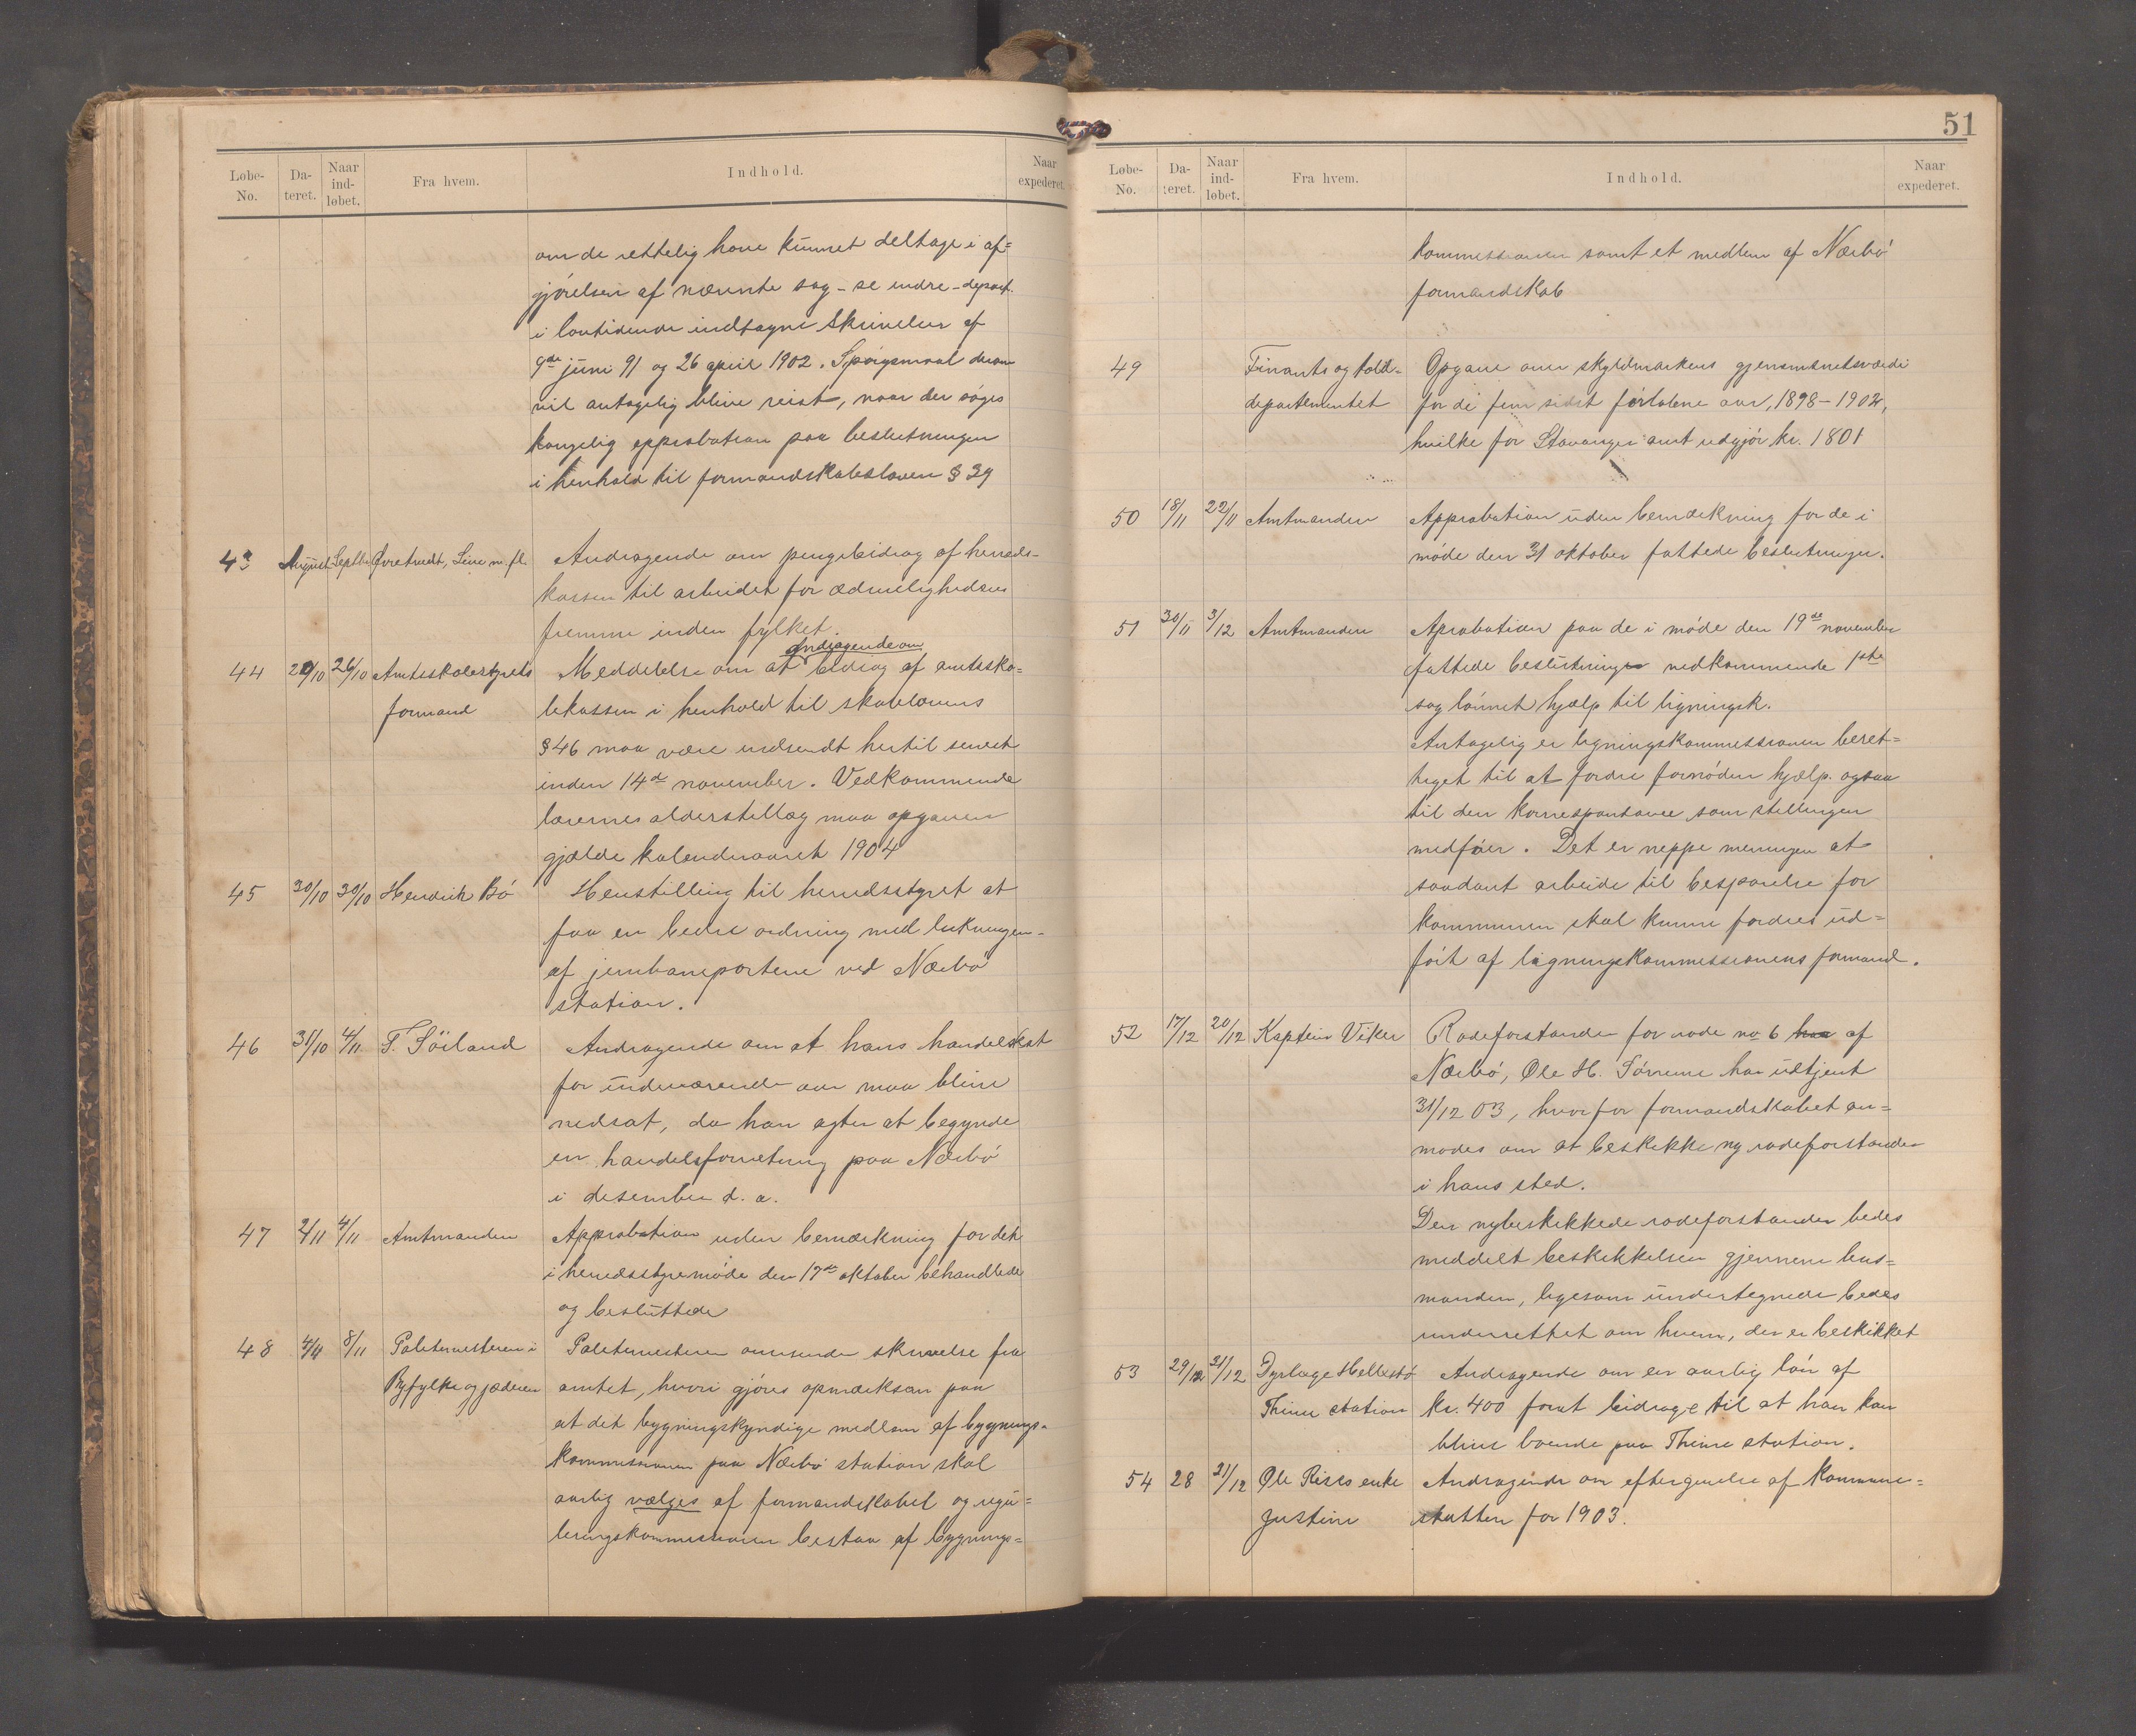 Løbe-No. Da-teret. Naar ind-løbet. Fra hvem. Indhold. Naar expederet.
om de rettelig have kunnet deltage i af=
gjørelsen af nævnte sag - se indre-depart.
i lovtidende indtagne skrivelser af
9de juni 91 og 26 april 1902. Spørgsmaal derom
vil antagelig blive reist, naar der søges
kongelig approbation paa beslutningen
i henhold til formandskabsloven § 39
43 August Septbr. Øvretvedt, Line m. fl. Andragende om pengebidrag af herreds-
kassen til arbeidet for ædruelighedens
fremme inden fylket.
andragende om
44 20/10 26/10 Amtsskolestyrets Meddelelse om at bidrag af amtssko-
formand lekassen i henhold til skolelovens
§ 46 maa være indsendt hertil senest
inden 14de november. Vedkommende
lærernes alderstillæg maa opgaven
gjælde kalenderaaret 1904
45 30/10 30/10 Hendrik Bø Henstilling til herredsstyret at
faa en bedre ordning med lukningen
af jernbaneportene ved Nærbø
station.
46 31/10 4/11 T. Söiland Andragende om at hans handelskat
for indeværende aar maa blive
nedsat, da han agter at begynde
en handelsforretning paa Nærbø
i desember d. a.
47 2/11 4/11 Amtmanden Approbation uden bemærkning for det
i herredsstyremøde den 17de oktober behandlede
og besluttede
48 4/11 8/11 Politimesteren i Politimesteren oversender skrivelse fra
Ryfylke og jæderen amtet, hvori gjøres opmærksom paa
at det bygningskyndige medlem af bygnings-
kommissionen paa Nærbø station skal
aarlig vælges af formandskabet og regu=
leringskommissionen bestaa af bygnings=
51
Løbe-No. Da-teret. Naar ind-løbet. Fra hvem. Indhold. Naar expederet.
kommissionen samt et medlem af Nærbø
formandskab
49 Finants og told- Opgave over skyldmarkens gjennemsnitsværdi
departementet for de fem sidst forløbne aar, 1898-1902,
hvilke for Stavanger amt udgjør kr. 1801
50 18/11 22/11 Amtmanden Approbation uden bemærkning for de i
møde den 31 oktober fattede beslutninger.
51 30/11 3/12 Amtmanden Aprobation paa de i møde den 19de november
fattede beslutninger vedkommende 1ste
sag lønnet hjælp til ligningsk.
Antagelig er ligningskommissionen beret=
tiget til at fordre fornøden hjælp. ogsaa
til den korrespontance som stillingen
medfører. Det er neppe meningen at
saadant arbeide til besparelse for
kommunen skal kunne fordres ud=
ført af ligningskommissionens formand.
52 17/12 20/12 Kaptein Viker Rodeforstander for rode no 6 har af
Nærbø, Ole H. Tørreme har udtjent
31/12 03, hvorfor formandskabet an=
modes om at beskikke ny rodeforstander
i hans sted.
Den nybeskikkede rodeforstander bedes
meddelt beskikkelsen gjennem lens=
manden, ligesom undertegnede bedes
underrettet om hvem, der er beskikket
53 29/12 21/12 Dyrlæge Hellestø Andragende om en aarlig løn af
Thime station kr. 400 for at bidrage til at han kan
blive boende paa Thime station.
54 28 21/12 Ole Rises enke Andragende om eftergivelse af kommune=
Justine skatten for 1903.